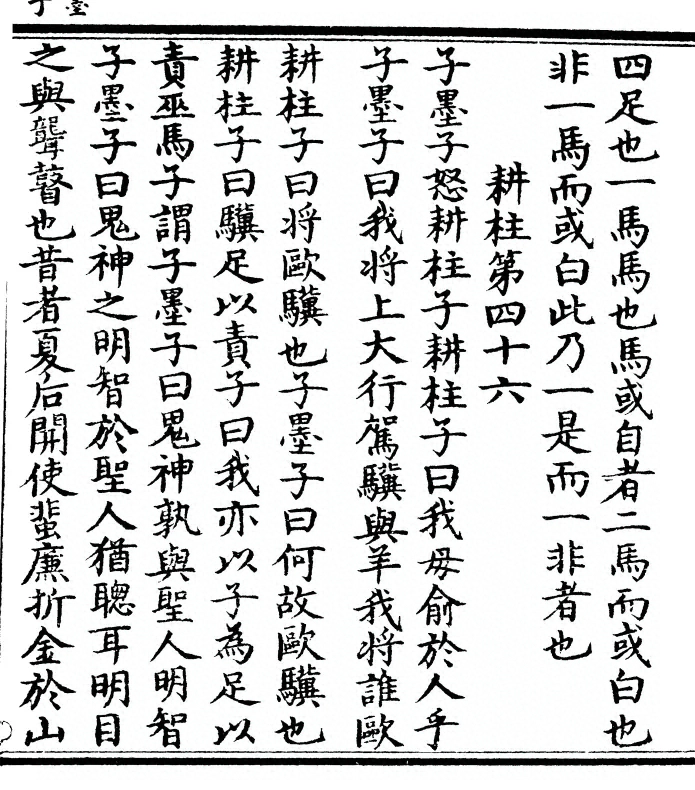 四足也一馬馬也馬或自者二馬而或白也
非一馬而或白此乃一是而一非者也
耕柱第四十六
子墨子怒耕柱子耕柱子曰我毋俞於人乎
子墨子曰我将上大行駕驥與羊我将誰歐
耕柱子曰将歐驥也子墨子曰何故歐驥也
耕柱子曰驥足以責子曰我亦以子為足以
責巫馬子謂子墨子曰鬼神孰與聖人明智
子墨子曰鬼神之明智於聖人猶聰耳明目
之與聾瞽也昔者夏后開使蜚廉折金於山